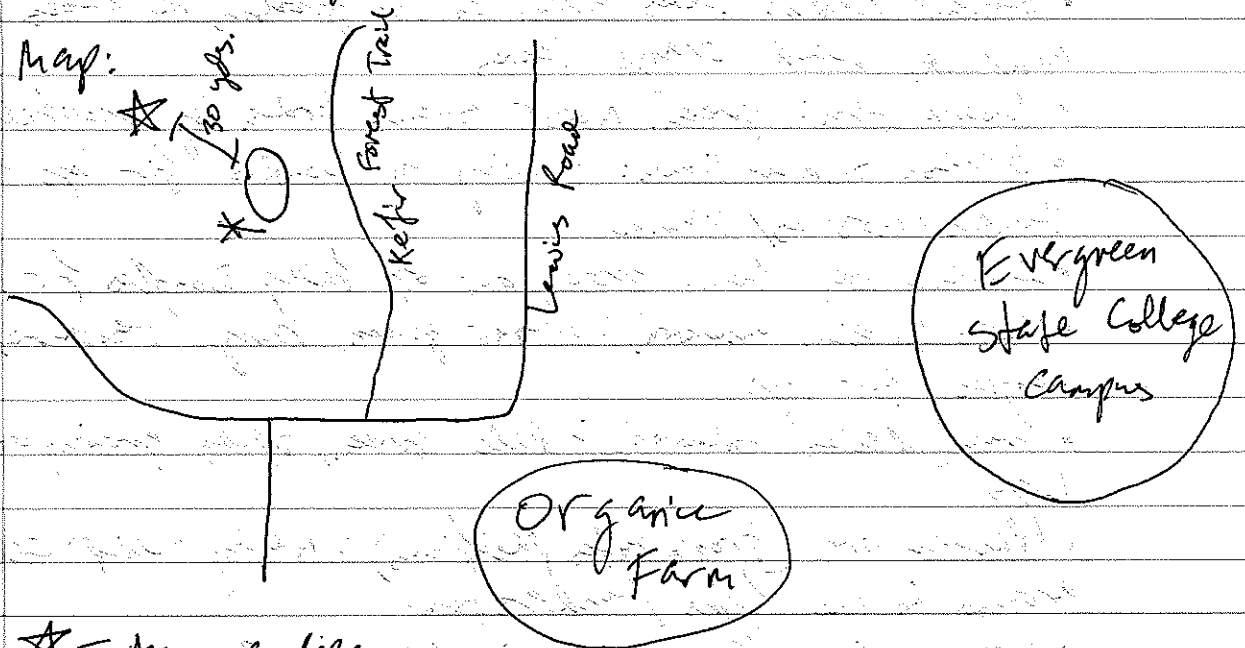 Map:
30 yds.
Kefir Forest Trail
Lewis Road
Evergreen
State College
Campus
Organic
Farm